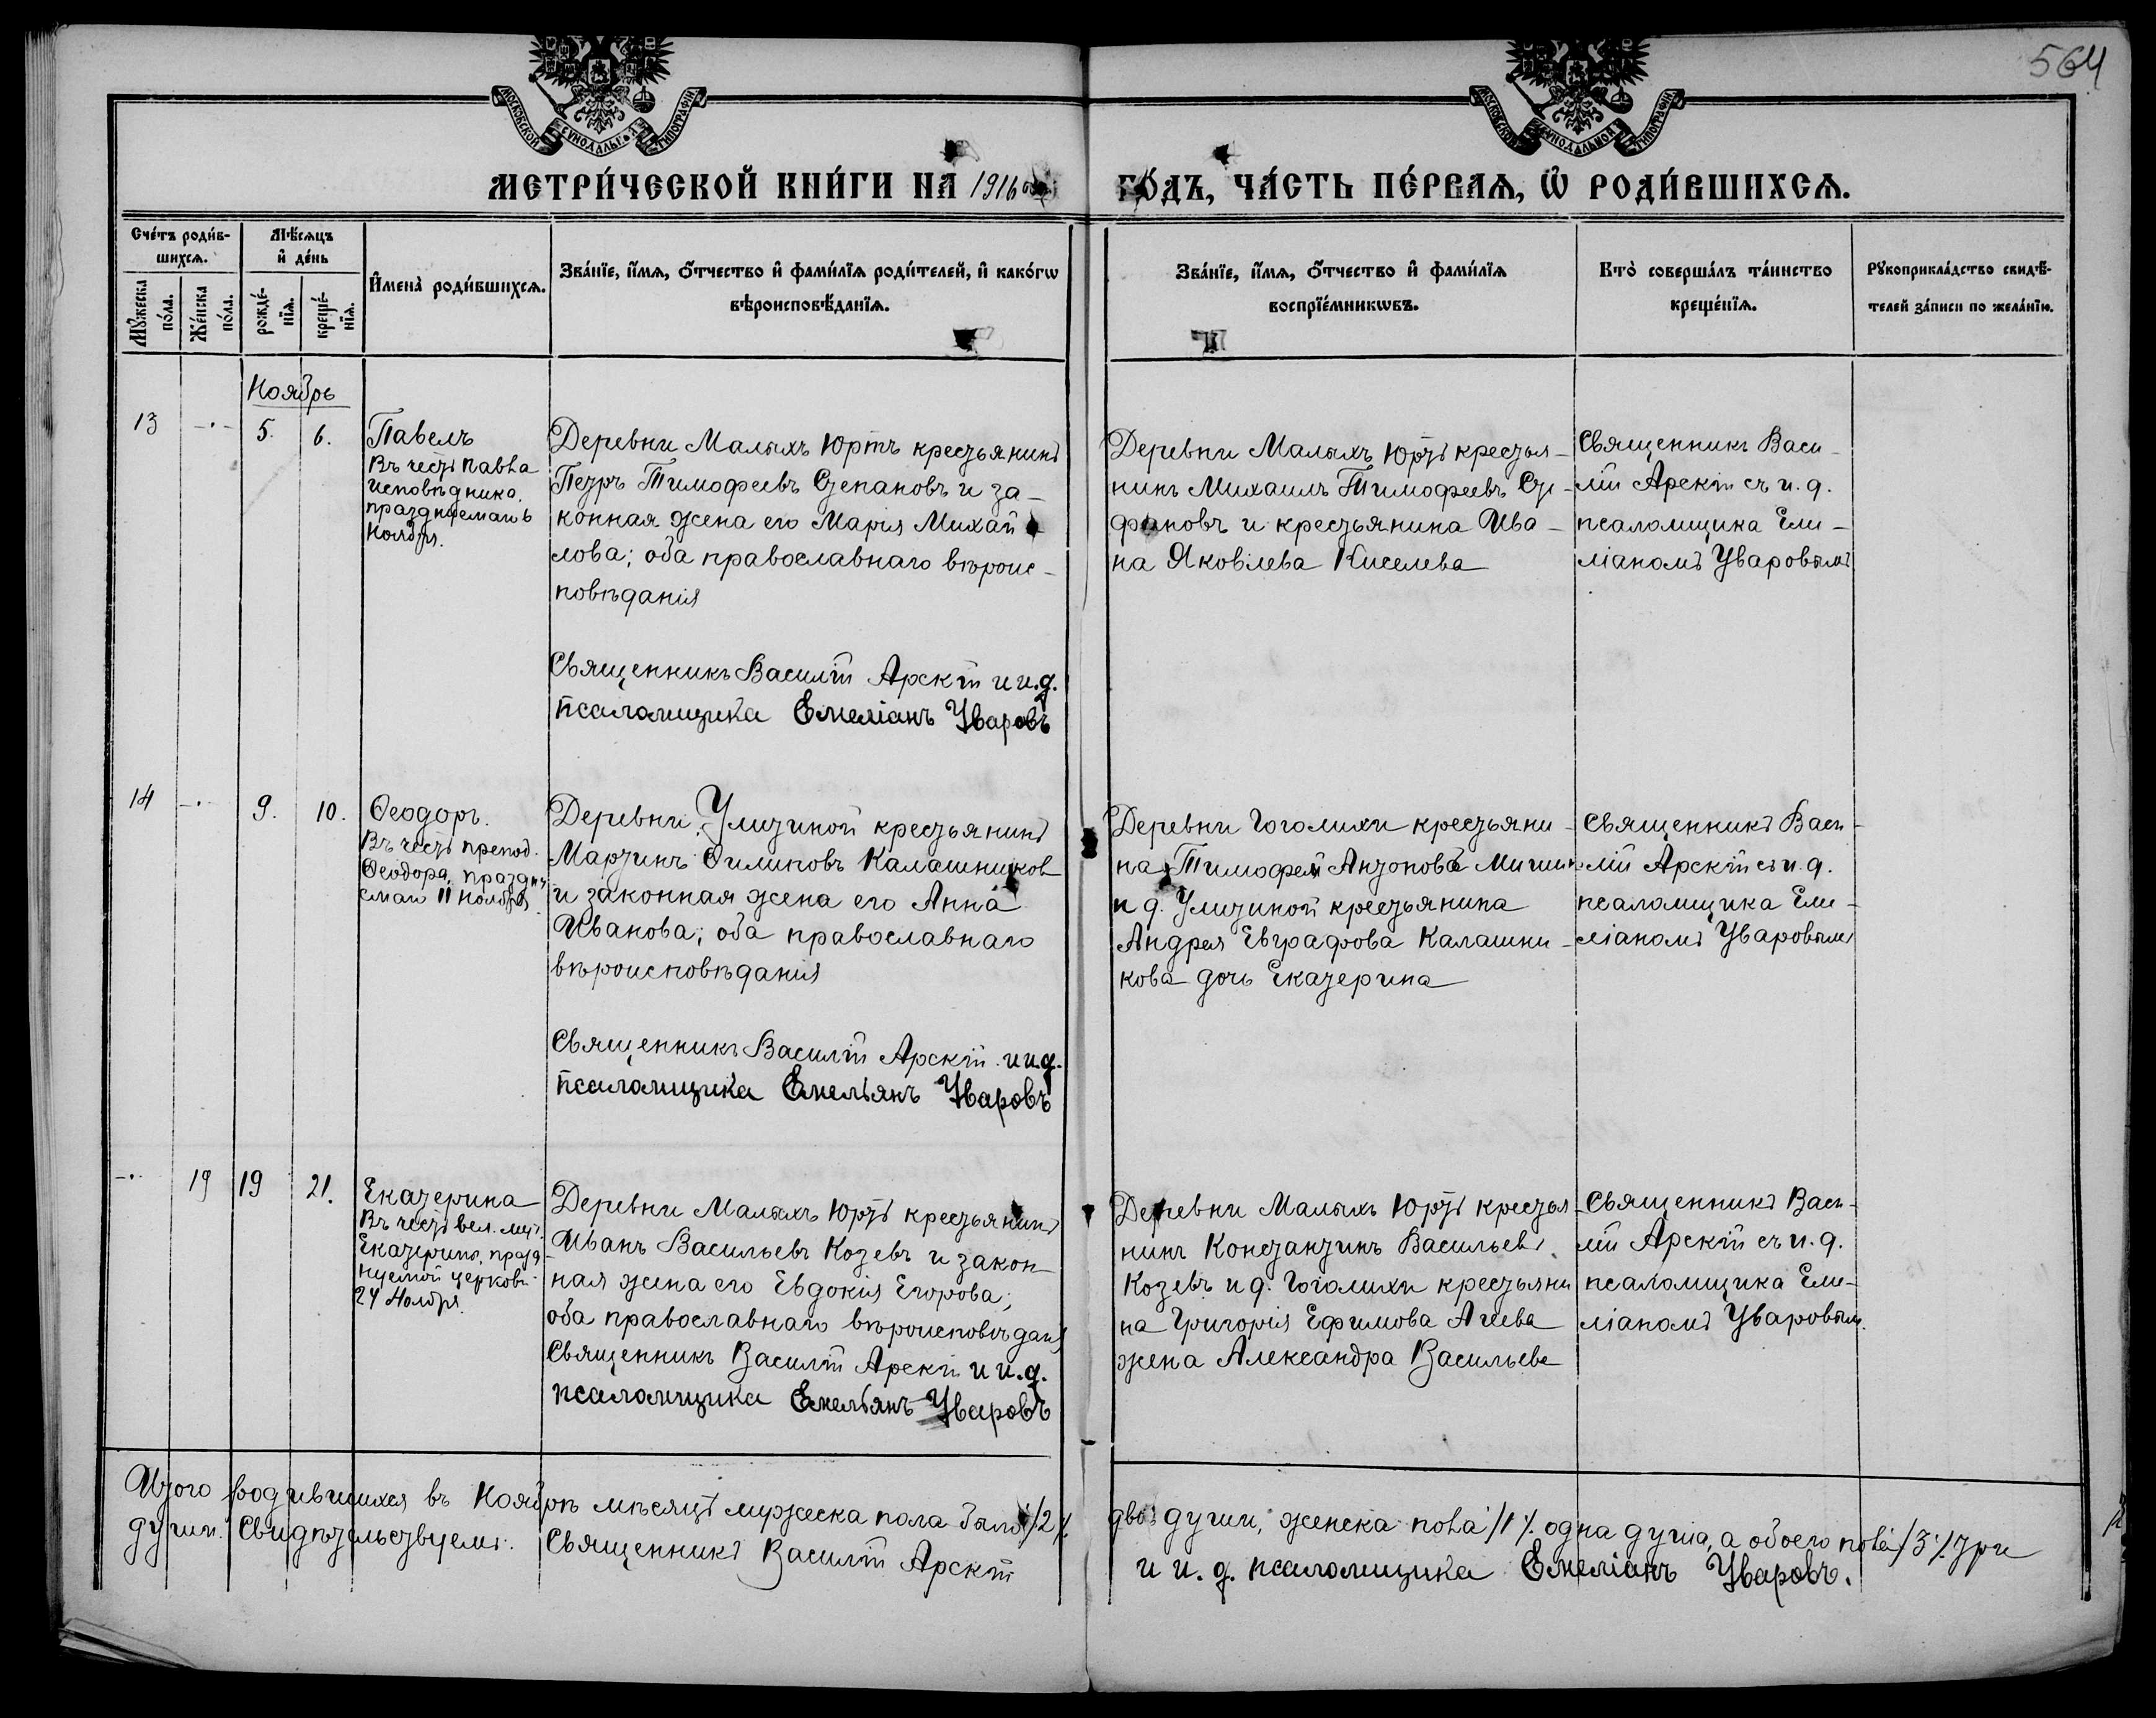 564
МОСКОВСКОЙ СУНОДАЛЬНОЙ ТИПОГРАФІИ
МОСКОВСКОЙ СУНОДАЛЬНОЙ ТИПОГРАФІИ
МЕТРИ́ЧЕСКОЙ КНИ́ГИ НА 1916
ГО́ДЪ, ЧА́СТЬ ПЕ́РВАѦ, Ѽ РОДИ́ВШИХСѦ.
Сче́тъ роди́в-
шихсѧ.
Мꙋ́жеска по́ла.
Же́нска по́ла.
Мѣ́сѧцъ
и҆ де́нь
рожде́-
нїѧ.
креще́-
нїѧ.
И҆мена̀ роди́вшихсѧ.
Зва́нїе, и҆́мѧ, о҆́тчество и҆ фами́лїѧ роди́телей, и҆ како́гѡ
вѣроисповѣ́данїѧ.
Зва́нїе, и҆́мѧ, о҆́тчество и҆ фами́лїѧ
воспрїе́мникѡвъ.
Кто̀ соверша́лъ та́инство
креще́нїѧ.
Рꙋкоприкла́дство свидѣ́-
телей за́писи по жела́нїю.
Ноябрь
13
5.
6.
Павелъ
Въ честь Павла
исповѣдника,
празднуемаго 6
Ноября.
Деревни Малыхъ Юртъ крестьянинъ
Петръ Тимофеевъ Степановъ и за-
конная жена его Марія Михай
лова; оба православнаго вѣроис-
повѣданія
Священникъ Василій Арскій и и.д.
псаломщика Емеліанъ Уваровъ
Деревни Малыхъ Юртъ крестья-
нинъ Михаилъ Тимофеевъ Сте-
фановъ и крестьянина Ива-
на Яковлева Киселева
Священникъ Васи-
лій Арскій съ и.д.
псаломщика Еме-
ліаномъ Уваровымъ
14
9.
10.
Ѳеодоръ.
Въ честь препод.
Ѳеодора, праздну
емаго 11 Ноября.
Деревни Улитиной крестьянинъ
Мартинъ Филиповъ Калашников
и законная жена его Анна
Иванова; оба православнаго
вѣроисповѣданія
Священникъ Василій Арскій и и.д.
псаломщика Емельянъ Уваровъ
Деревни Гоголихи крестьяни-
на Тимофей Антоновъ Мишин
и д. Улитиной крестьянина
Андрея Евграфова Калашни-
кова дочь Екатерина
Священникъ Васи-
лій Арскій съ и.д.
псаломщика Еме-
ліаномъ Уваровымъ
19
19
21.
Екатерина
Въ честь вел. муч.
Екатерины, празд
нуемой церковью
24 Ноября.
Деревни Малыхъ Юртъ крестьянинъ
Иванъ Васильевъ Козевъ и закон-
ная жена его Евдокія Егорова;
оба православнаго вѣроисповѣданія
Священникъ Василій Арскій и и.д.
псаломщика Емельянъ Уваровъ
Деревни Малыхъ Юртъ крестья
нинъ Константинъ Васильевъ
Козевъ и д. Гоголихи крестьяни
на Григорія Ефимова Агеева
жена Александра Васильева
Священникъ Васи-
лій Арскій съ и.д.
псаломщика Еме-
ліаномъ Уваровым.
Итого родившихся въ Ноябрѣ мѣсяцѣ мужеска пола было /2/. двѣ души, женска пола /1/. одна душа, а обоего пола /3/. три
души. Свидѣтельствуемъ: Священникъ Василій Арскій и и. д. псаломщика Емеліанъ Уваровъ.